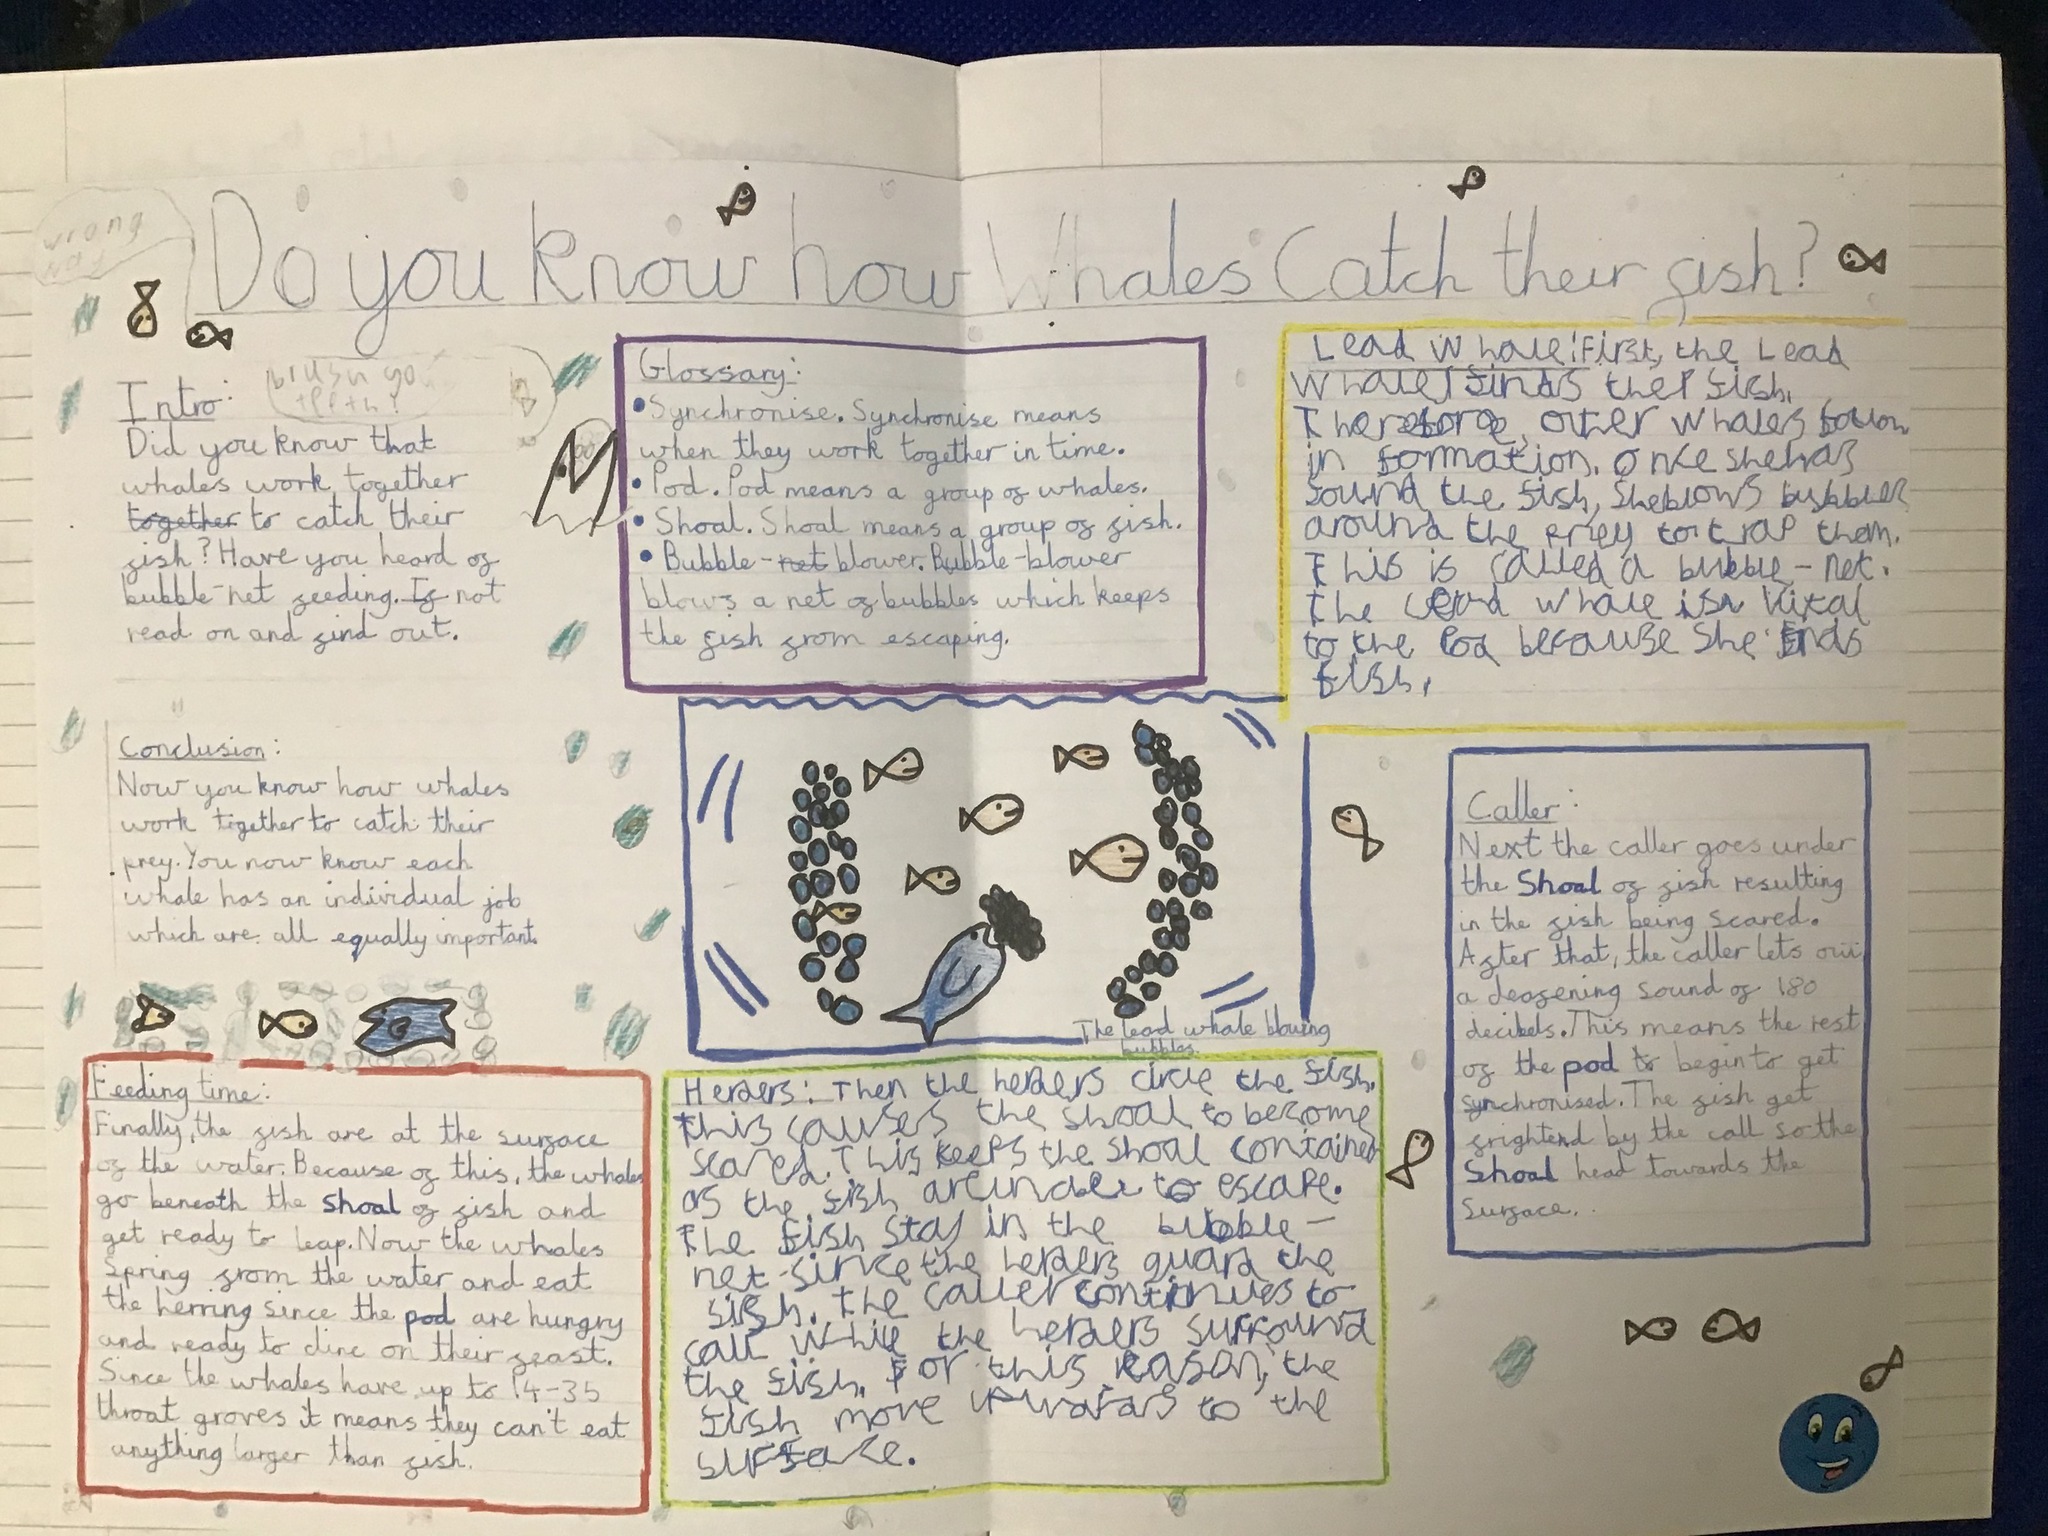 wrong
way
Do you know how Whales Catch their fish?
Intro:
brush yo
teeth!
Did you know that
whales work together
together to catch their
fish? Have you heard of
bubble-net feeding. If not
read on and find out.
Glossary:
• Synchronise. Synchronise means
when they work together in time.
• Pod. Pod means a group of whales.
• Shoal. Shoal means a group of fish.
• Bubble-net blower. Bubble-blower
blows a net of bubbles which keeps
the fish from escaping.
Lead Whale: First, the Lead
whale finds the fish.
Therefore, other whales follow
in formation. Once she has
found the fish, she blows bubbles
around the prey to trap them.
This is called a bubble-net.
The lead whale is vital
to the Pod because she finds
fish.
Conclusion:
Now you know how whales
work together to catch their
prey. You now know each
whale has an individual job
which are all equally important.
The lead whale blowing
bubbles.
Caller:
Next the caller goes under
the Shoal of fish resulting
in the fish being scared.
After that, the caller lets
a deafening sound of 180
decibels. This means the rest
of the pod to begin to get
synchronised. The fish get
frightend by the call so the
Shoal head towards the
surface.
Feeding time:
Finally, the fish are at the surface
of the water. Because of this, the whales
go beneath the shoal of fish and
get ready to leap. Now the whales
spring from the water and eat
the herring since the pod are hungry
and ready to dine on their feast.
Since the whales have up to 14-35
throat groves it means they can't eat
anything larger than fish.
Herders: Then the herders circle the fish,
this causes the shoal to become
scared. This keeps the shoal contained
as the fish are to escape.
The fish stay in the bubble-
net since the herders guard the
fish. The caller continues to
call while the herders surround
the fish. For this reason, the
fish move upwards to the
surface.